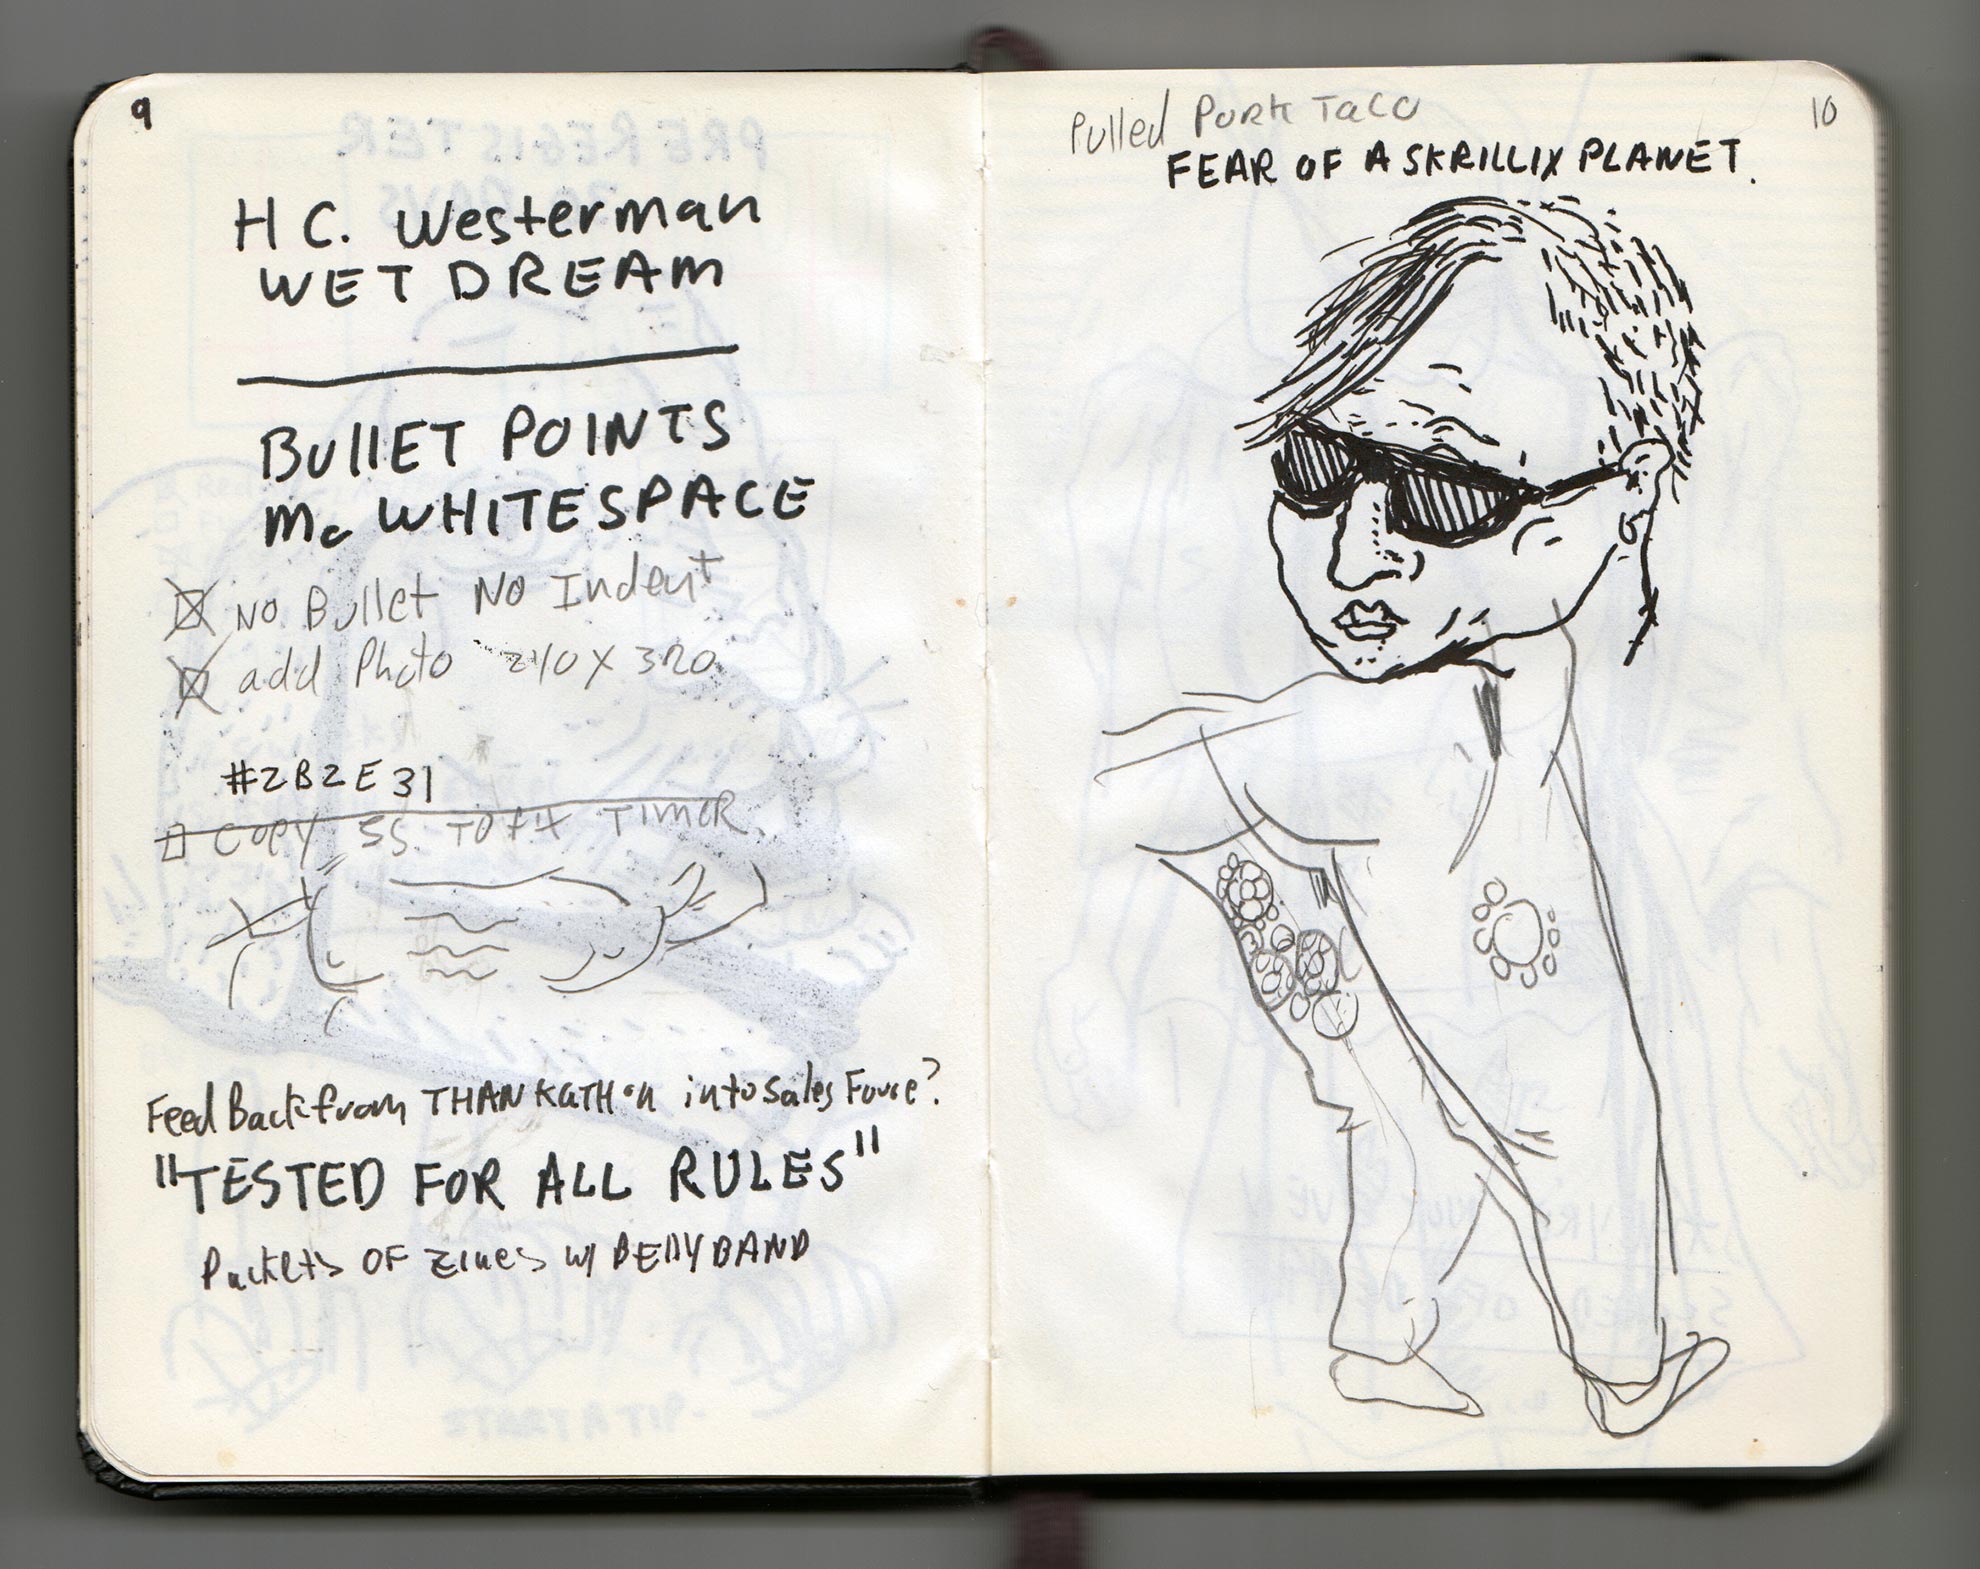 9
H C. Westerman
WET DREAM
BullET POINTS
Mc WHITESPACE
NO Bullet NO Indent
add Photo 240 X 320
#2B2E31
COPY SS TO FIX TIMER.
Feed Back from THANKATHON into Sales Force?
"TESTED FOR ALL RULES"
Packets OF zines w/ BELLYBAND
10
Pulled Pork Taco
FEAR OF A SKRILLIX PLANET.